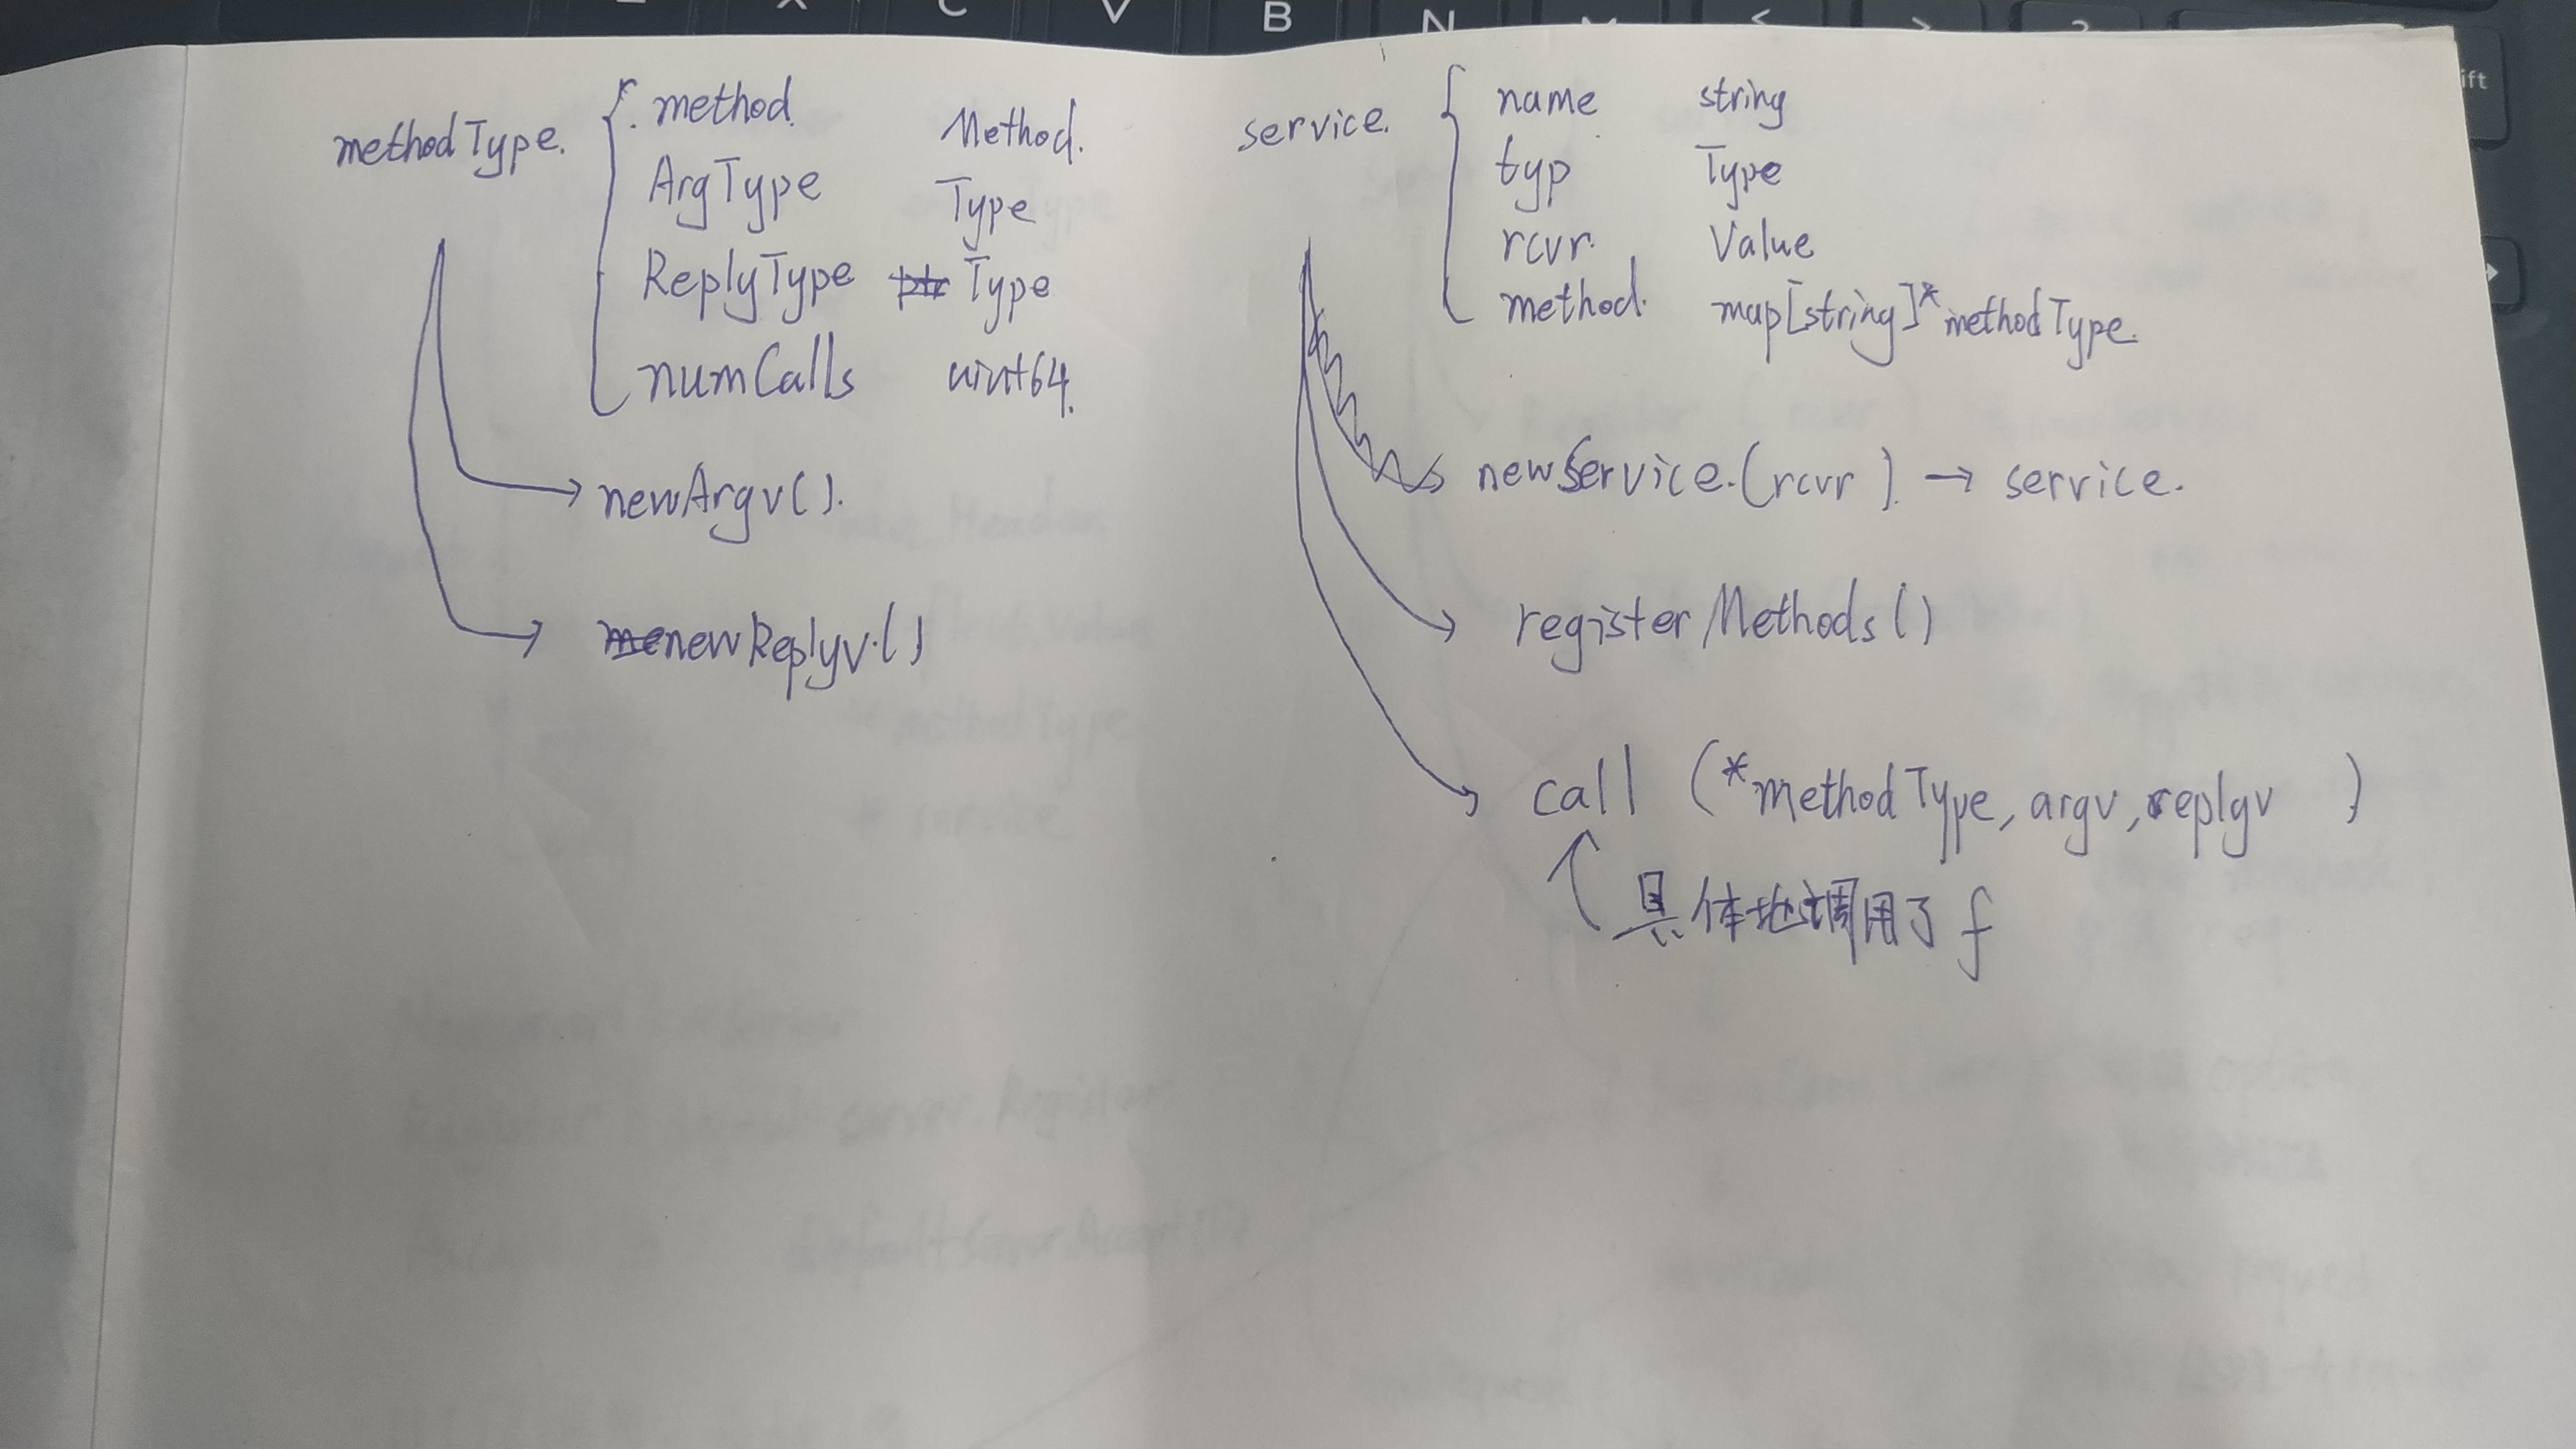 C V B N M < > ?
ift
methodType. { method. Method.
ArgType Type
ReplyType Type
numCalls uint64.
newArgv().
newReplyv.()
service. { name string
typ Type
rcvr. Value
method. map[string]*methodType.
newService.(rcvr). → service.
registerMethods()
call (*methodType, argv, replyv )
具体地调用了 f